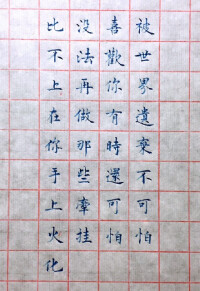 被世界遺棄不可怕
喜歡你有時還可怕
沒法再做那些牽挂
比不上在你手上火化